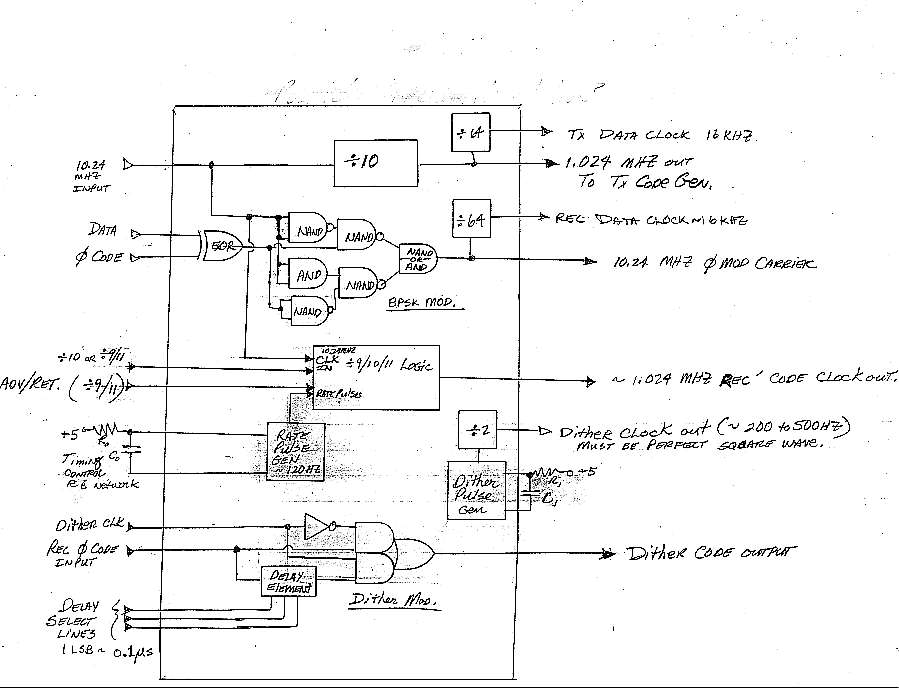 ÷64
TX DATA CLOCK 16 KHZ
10.24 MHZ INPUT
÷10
1.024 MHZ OUT
TO TX CODE GEN.
÷64
REC DATA CLOCK ~16 KHZ
DATA
φ CODE
EOR
NAND
NAND
NAND OR AND
AND
NAND
NAND
BPSK MOD.
10.24 MHZ φ MOD CARRIER
÷10 OR ÷9/11
ADV/RET. (÷9/11)
10.24MHZ
CLK IN
÷9/10/11 LOGIC
RATE PULSES
~ 1.024 MHZ REC' CODE CLOCK OUT.
+5
R₀
C₀
Timing
CONTROL
RC Network
RATE
PULSE
GEN
~120HZ
÷2
Dither Clock out (~200 to 500HZ)
MUST BE PERFECT SQUARE WAVE.
Dither
Pulse
Gen
+5
R₁
C₁
Dither CLK
REC φ CODE
INPUT
DELAY
ELEMENT
Dither Mod.
DITHER CODE OUTPUT
DELAY
SELECT
LINES
1 LSB ~ 0.1µs